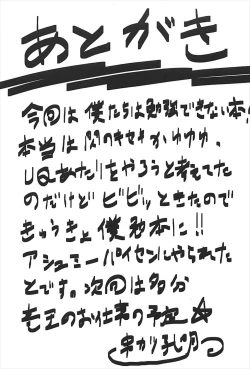 あとがき
今回は僕たちは勉強できない本!
本当は閃のキセキかゆゆゆ、
UQあたりをやろうと考えてた
のだけどビビッときたので
きゅうきょ僕勉本に!!
アシュミーパイセンにやられた
とです。次回は多分
竜王のお仕事の予定☆
串がり孔明